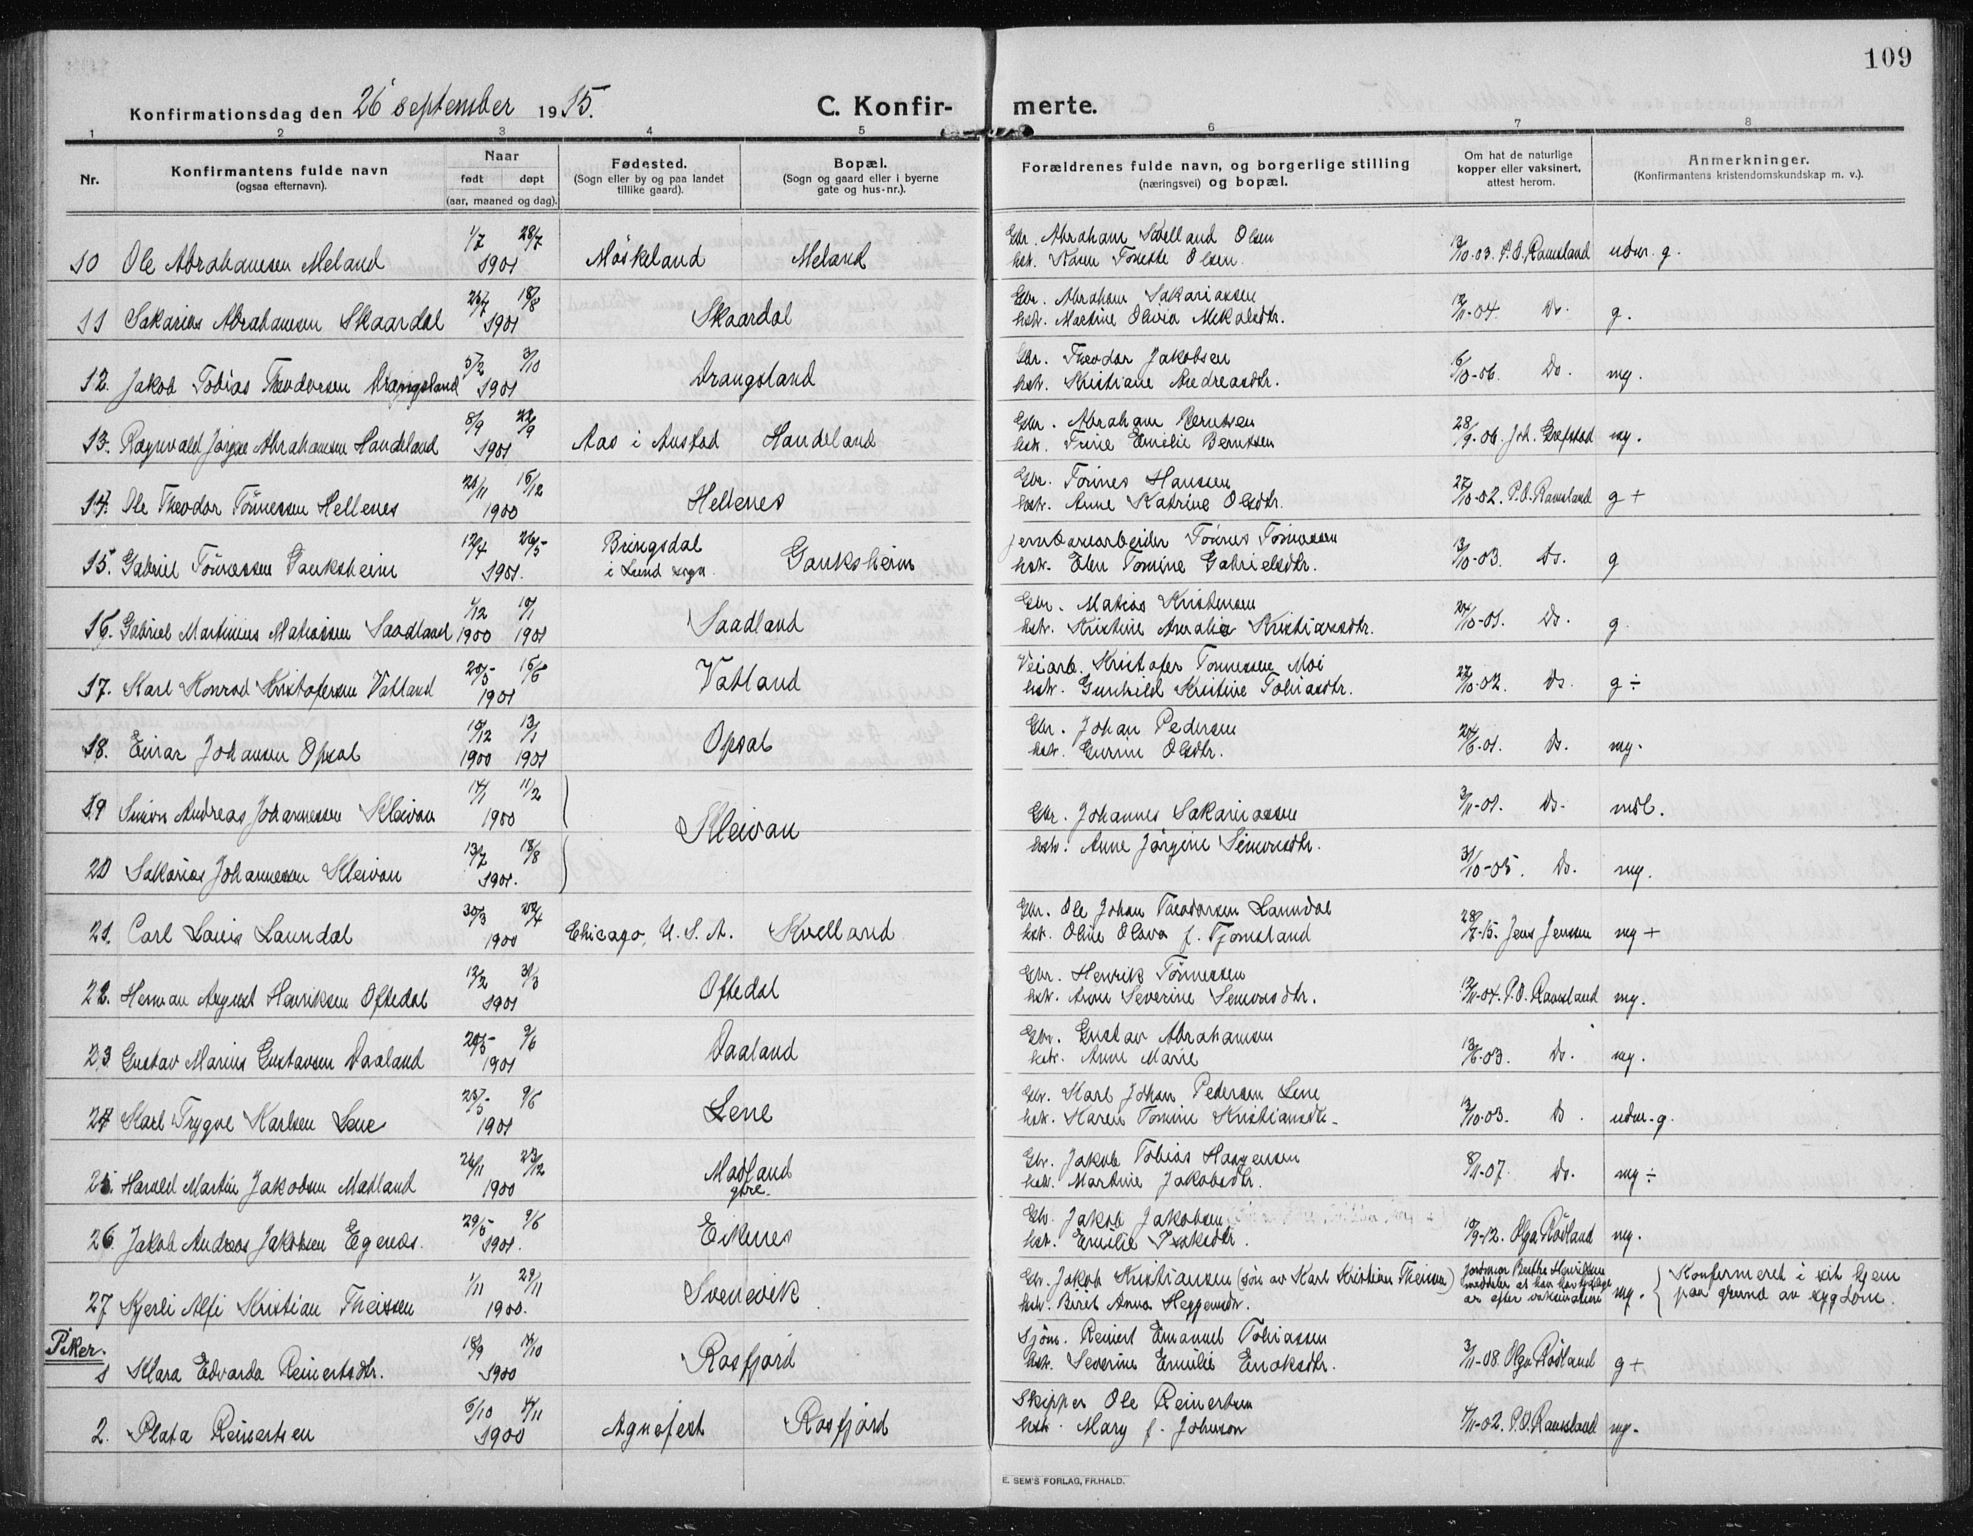 109
Konfirmationsdag den 26 september 1915.
C. Konfirmerte.
1 2 3 4 5 6 7 8
Nr.
Konfirmantens fulde navn
(ogsaa efternavn).
Naar
født døpt
(aar, maaned og dag).
Fødested.
(Sogn eller by og paa landet
tillike gaard).
Bopæl.
(Sogn og gaard eller i byerne
gate og hus-nr.).
Forældrenes fulde navn, og borgerlige stilling
(næringsvei) og bopæl.
Om hat de naturlige
kopper eller vaksinert,
attest herom.
Anmerkninger.
(Konfirmantens kristendomskundskap m. v.).
10 Ole Abrahamsen Meland 1/7 28/7 1901 Møskeland Meland
Gbr. Abraham Olsen
hstr. Tomette Olsen. 13/10-03. P.O. Ramsland udm. g.
11 Sakarias Abrahamsen Skaardal 25/7 18/8 1901 Skaardal
Gbr. Abraham Sakariassen
hstr. Martine Olivia Mikalsdtr. 12/11-04. Do. g.
12. Jakob Tobias Theodorsen Drangsland 3/10 1901 Drangsland
Gbr. Theodor Jakobsen
hstr. Kristiane Andreasdtr. 6/10-06. Do. mg.
13. Ragnvald Jørgen Abrahamsen Handeland 8/9 22/9 1901 Aas i Austad Handeland
Gbr. Abraham Berntsen
hstr. Trine Emilie Berntsen 28/9-06. Joh. Grefstad mg.
14. Ole Theodor Tønnessen Hellenes 16/12 1900 Hellenes
Gbr. Tønnes Hansen
hstr. Anne Katrine Olsdtr. 27/10-02. P.O. Ramsland g +
15. Gabriel Tønnessen Gauksheim 12/4 26/5 1901. Bringsdal
i Lund sogn. Gauksheim
Jernbanearbeider Tønnes Tønnessen
hstr. Elen Tomine Gabrielsdtr. 13/10-03. Do. g
16. Gabriel Martinius Mathiassen Saadland 1/12 1900 10/1 1901 Saadland
Gbr. Matias Kristensen
hstr. Kristine Amalie Kristiansdtr. 24/10-01. Do. g.
17. Karl Konrad Kristofersen Vatland 20/5 16/6 1901 Vatland
Veiarb. Kristofer Tønnessen Moi
hstr. Gunhild Kristine Tobiasdtr. 27/10-02. Do. g ÷
18. Einar Johansen Opsal 10/12 1900 13/1 1901 Opsal
Gbr. Johan Pedersen
hstr. Gurine Olsdtr. 24/6-01. Do. mg.
19 Simon Andreas Johannessen Kleivan 14/1 11/2 1900
Kleivan
Gbr. Johannes Sakariassen 3/11-01. Do. mdl.
hstr. Anne Jørgine Simonsdtr.
20 Sakarias Johannessen Kleivan 13/7 18/8 1901. 31/10-05. Do. mg.
21. Carl Louis Laundal 30/3 22/4 1900 Chicago, U.S.A. Kvelland
Gbr. Ole Johan Theodorsen Laundal
hstr. Oline Olava f. Tjomsland 28/7-15. Jens Jenssen mg +
22. Herman August Henriksen Oftedal 12/2 31/3 1901 Oftedal
Gbr. Henrik Tønnessen
hstr. Anne Severine Simonsdtr. 12/11-04. P.O. Ramsland mg.
23. Gustav Marius Gustavsen Daaland 20/5 9/6 1901 Daaland
Gbr. Gustav Abrahamsen
hstr. Anne Marie 13/6-03. Do. mg.
24 Karl Trygve Karlsen Lene 25/5 9/6 1901 Lene
Gbr. Karl Johan Pedersen Lene
hstr. Karen Tomine Kristiansdtr. 13/10-03. Do. udm. g.
25. Harald Martin Jakobsen Matland 26/11 23/12 1900 Matland
Gbr. Jakob Tobias Haagensen
hstr. Martine Jakobsdtr. 8/11-07. Do. mg ÷
26. Jakob Andreas Jakobsen Egenæs. 29/5 9/6 1901. Eikenes
Gbr. Jakob Jakobsen
hstr. Emilie Isaksdtr. 19/9-12. Olga Rødland mg.
27 Kjerli Alfi Kristian Theissen 1/11 29/11 1900. Svenevik
Gbr. Jakob Kristiansen (søn av Karl Kristian Theissen)
hstr. Birit Anna Heggemsdtr.
Jordmor Berthe Henriksen
meddeler at han har tydelige
ar efter vaksinationen mg. { Konfirmeret i sit hjem
paa grund av sygdom.
Piker.
1 Klara Edvarda Reinertsdtr. 18/9 1900 Rosfjord
Sjøm. Reinert Emanuel Tobiassen
hstr. Severine Emilie Enoksdtr. 3/11-08. Olga Rødland g +
2. Plata Reinertsen 6/10 4/11 1900 Agnefest Rosfjord
Skipper Ole Reinertsen
hstr. Mary f. Johnson 4/11-02. P.O. Ramsland mg.
E. SEM'S FORLAG, FR.HALD.